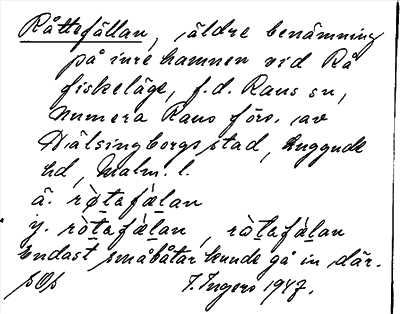 Råttefällan, äldre benämning
på inre hamnen vid Rå
fiskeläge, f.d. Raus sn,
numera Raus förs. av
Hälsingborgs stad, Luggude
hd, Malm. l.
ä. rø̀tafæ̀lan
y. rò̱tafæ̀lan, rà̱tafæ̀lan
Endast småbåtar kunde gå in där.
I. Ingers 1947.